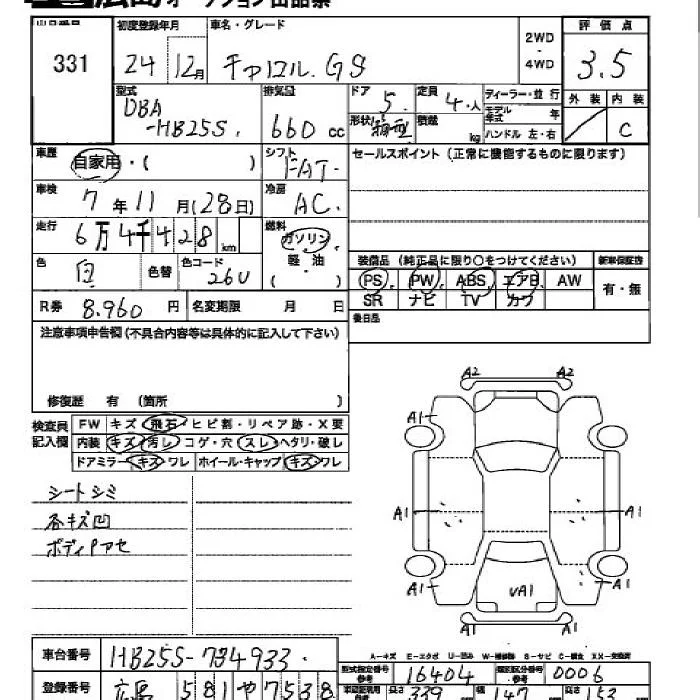 広島オークション出品票
出品番号 初度登録年月 車名・グレード 2WD・4WD 評価点
331 24 12月 キャロル.GS 3.5
型式 排気量 ドア 定員 ディーラー・並行 外装 内装
DBA-HB25S. 660cc 5. 4.人 モデル年式 年
形状 箱型 積載 kg ハンドル 左・右 C
車歴 自家用・( ) シフト FAT. セールスポイント(正常に機能するものに限ります)
車検 7年11月(28日) 冷房 AC.
走行 6万4千428km 燃料 ガソリン.軽・油( )
色 白 色替 色コード 26U
装備品(純正品に限り○をつけてください) 新車保証書
PS PW ABS エアB AW 有・無
SR ナビ TV カワ
R券 8.960円 名変期限 月 日 後日品
注意事項申告欄(不具合内容等は具体的に記入して下さい)
修復歴 有(箇所 )
検査員記入欄 FW キズ 飛石 ヒビ割・リペア跡・X要
内装 キズ 汚レ コゲ・穴 スレ ヘタリ・破レ
ドアミラー キズ ワレ ホイール・キャップ キズ・ワレ
シートシミ
各キズ凹
ボディPアセ
A2 A2
A1 A1
A1 A1
A1 A1
UA1
A-キズ E-エクボ U-凹み W-補修跡 S-サビ C-腐食 XX-交換済
車台番号 HB25S-734933.
型式指定番号 16404 類別区分番号 0006
登録番号 広島 581 や 7538
長さ 339 幅 147 高さ 153